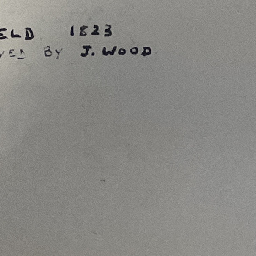 ELD 1823
BY J. WOOD